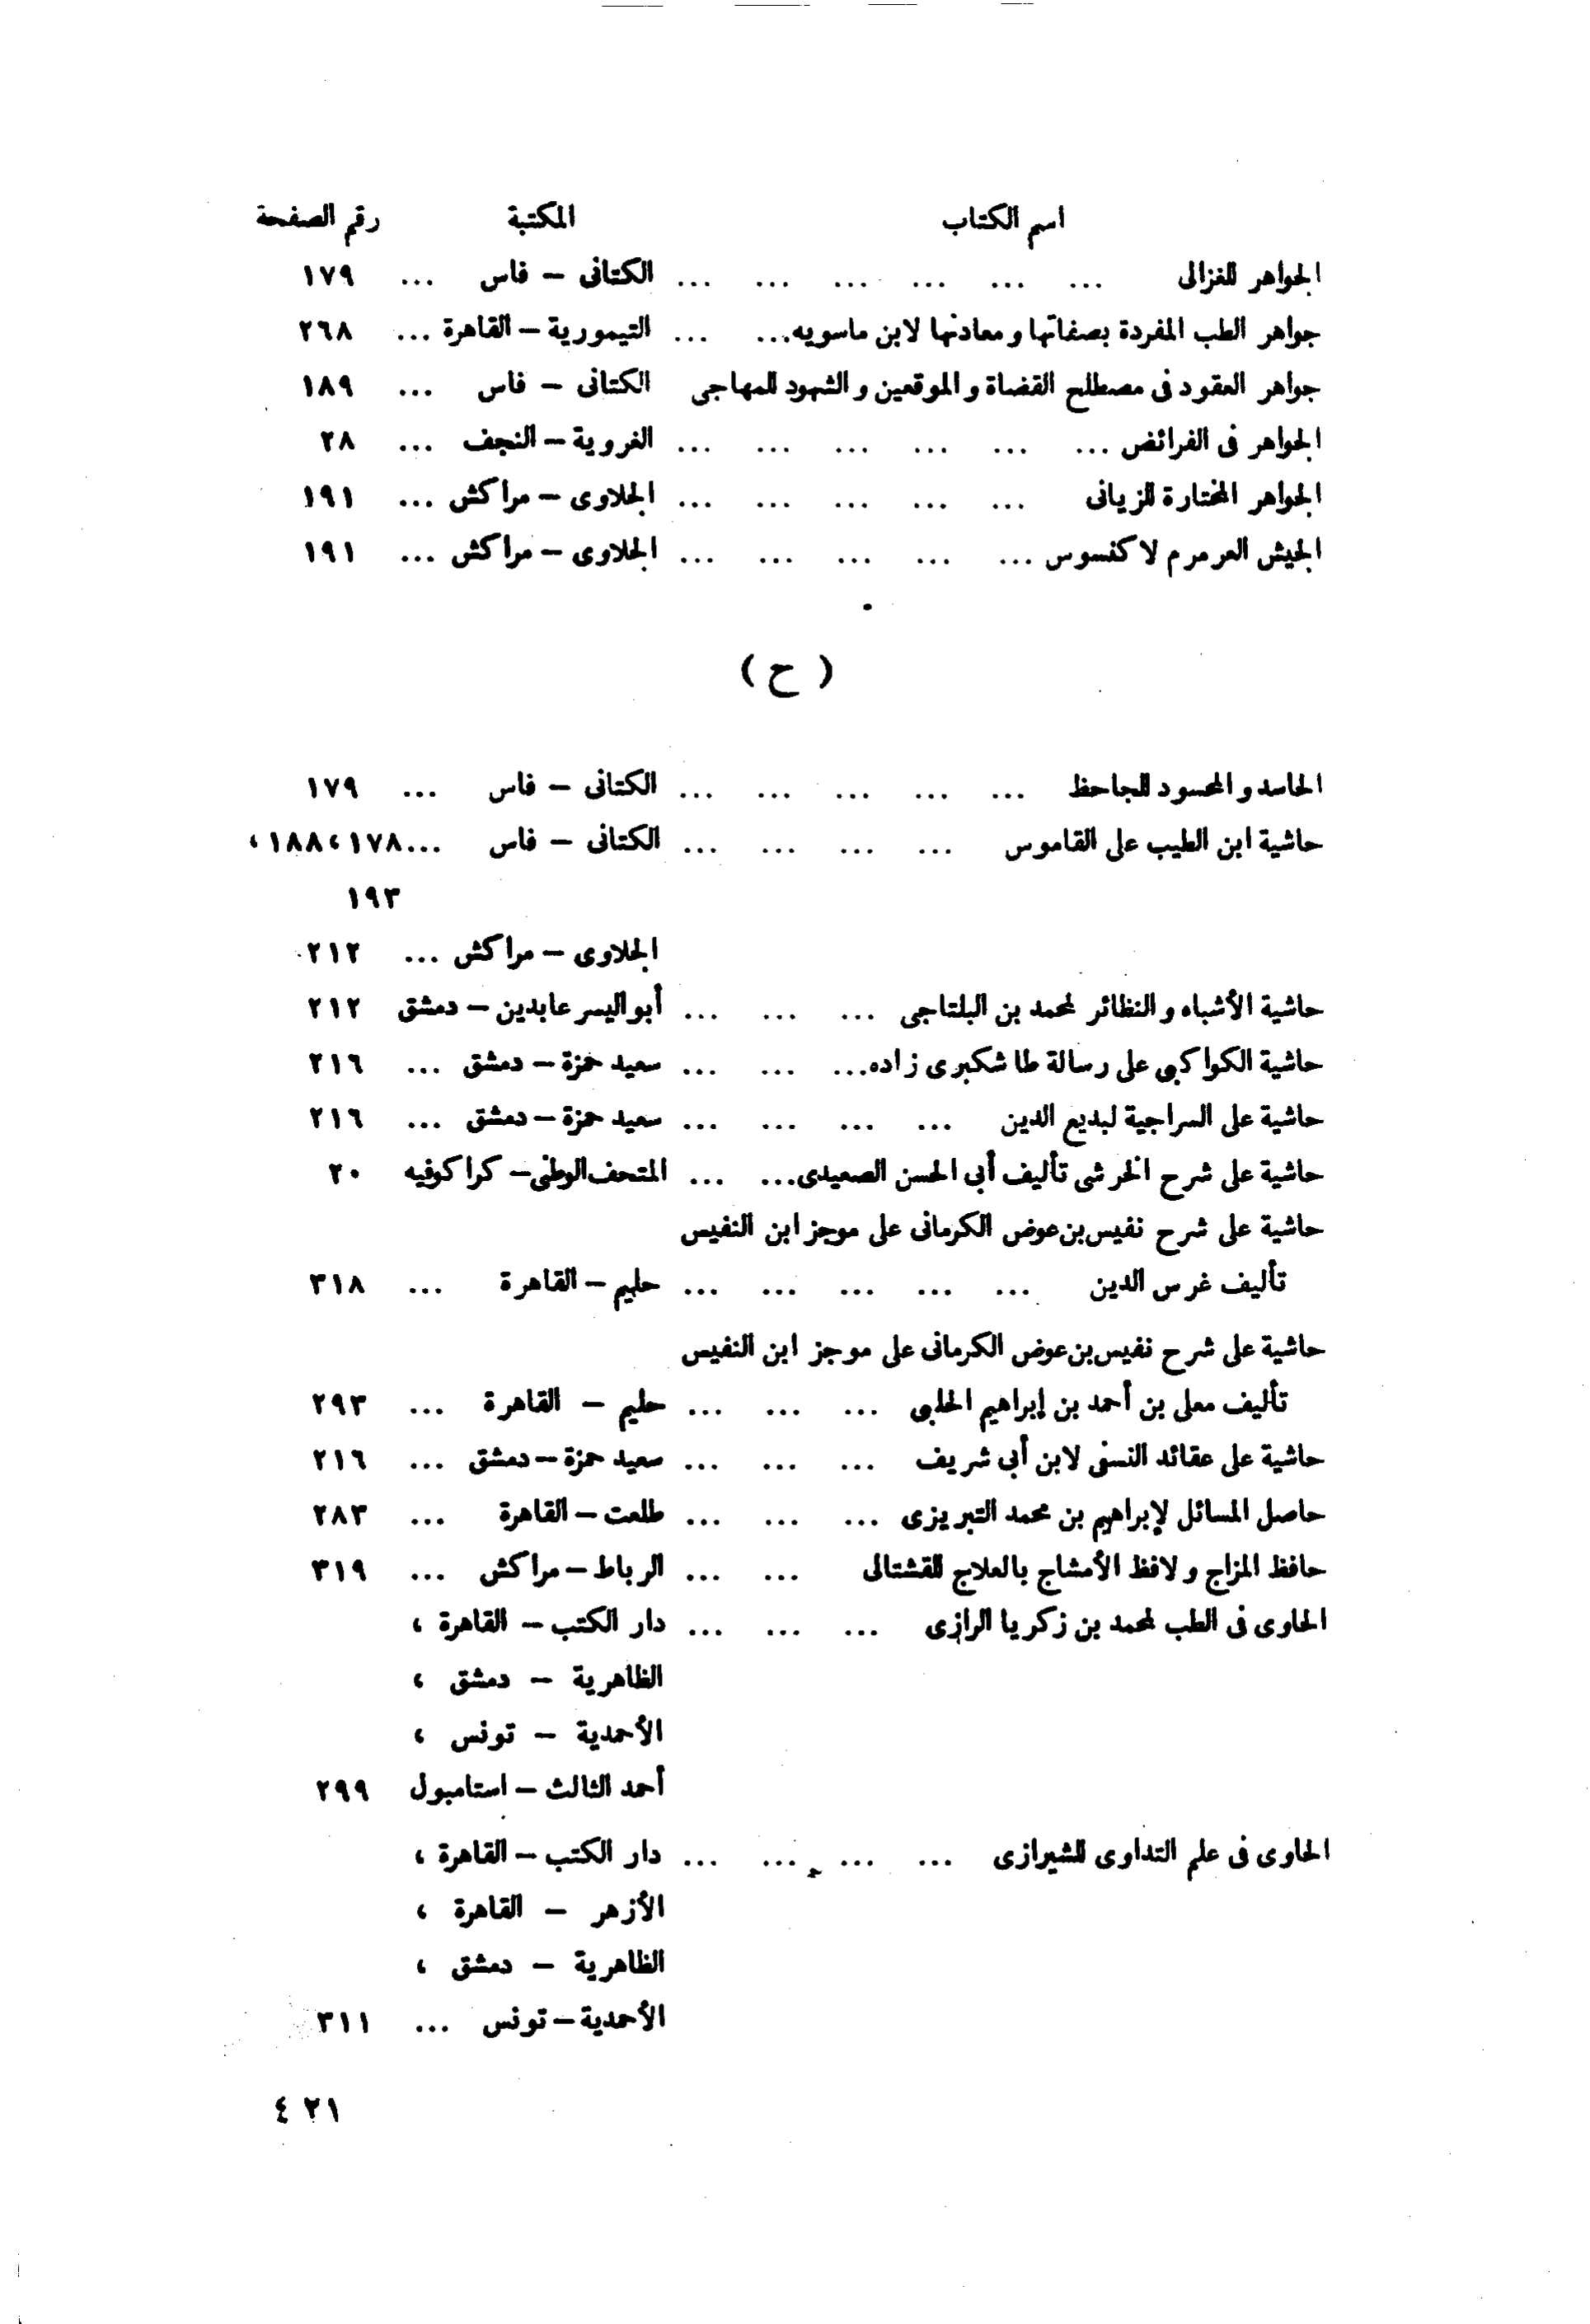 اسم الكتاب المكتبة رقم الصفحة
الجواهر للغزالى ... ... ... ... ... ... الكتانى – فاس ... ١٧٩
جواهر الطب المفردة بصفاتها ومعادنها لابن ماسويه... ... التيمورية – القاهرة ... ٢٦٨
جواهر العقود فى مصطلح القضاة والموقعين والشهود للمهاجى الكتانى – فاس ... ١٨٩
الجواهر فى الفرائض ... ... ... ... ... ... الغروية – النجف ... ٢٨
الجواهر المختارة للزيانى ... ... ... ... ... الجلاوى – مراكش ... ١٩١
الجيش العرمرم لاكنسوس ... ... ... ... ... الجلاوى – مراكش ... ١٩١
( ح )
الحاسد والمحسود للجاحظ ... ... ... ... ... الكتانى – فاس ... ١٧٩
حاشية ابن الطيب على القاموس ... ... ... ... الكتانى – فاس ...١٧٨، ١٨٨،
١٩٣
الجلاوى – مراكش ... ٢١٢
حاشية الأشباه والنظائر لمحمد بن البلتاجى ... ... ... أبو اليسر عابدين – دمشق ٢١٢
حاشية الكواكبى على رسالة طاشكبرى زاده... ... ... سعيد حمزة – دمشق ... ٢١٦
حاشية على السراجية لبديع الدين ... ... ... ... سعيد حمزة – دمشق ... ٢١٦
حاشية على شرح الخرشى تأليف أبى الحسن الصعيدى... ... المتحف الوطنى – كراكوفيه ٢٠
حاشية على شرح نفيس بن عوض الكرمانى على موجز ابن النفيس
تأليف غرس الدين ... ... ... ... ... حليم – القاهرة ... ٣١٨
حاشية على شرح نفيس بن عوض الكرمانى على موجز ابن النفيس
تأليف معلى بن أحمد بن إبراهيم الحلبى ... ... ... حليم – القاهرة ... ٢٩٣
حاشية على عقائد النسفى لابن أبى شريف ... ... ... سعيد حمزة – دمشق ... ٢١٦
حاصل المسائل لإبراهيم بن محمد التبريزى ... ... ... طلعت – القاهرة ... ٢٨٣
حافظ المزاج ولافظ الأمشاج بالعلاج للقشتالى ... ... الرباط – مراكش ... ٣١٩
الحاوى فى الطب لمحمد بن زكريا الرازى ... ... ... دار الكتب – القاهرة ،
الظاهرية – دمشق ،
الأحمدية – تونس ،
أحمد الثالث – استامبول ٢٩٩
الحاوى فى علم التداوى للشيرازى ... ... ... ... دار الكتب – القاهرة ،
الأزهر – القاهرة ،
الظاهرية – دمشق ،
الأحمدية – تونس ... ٣١١
٤٢١